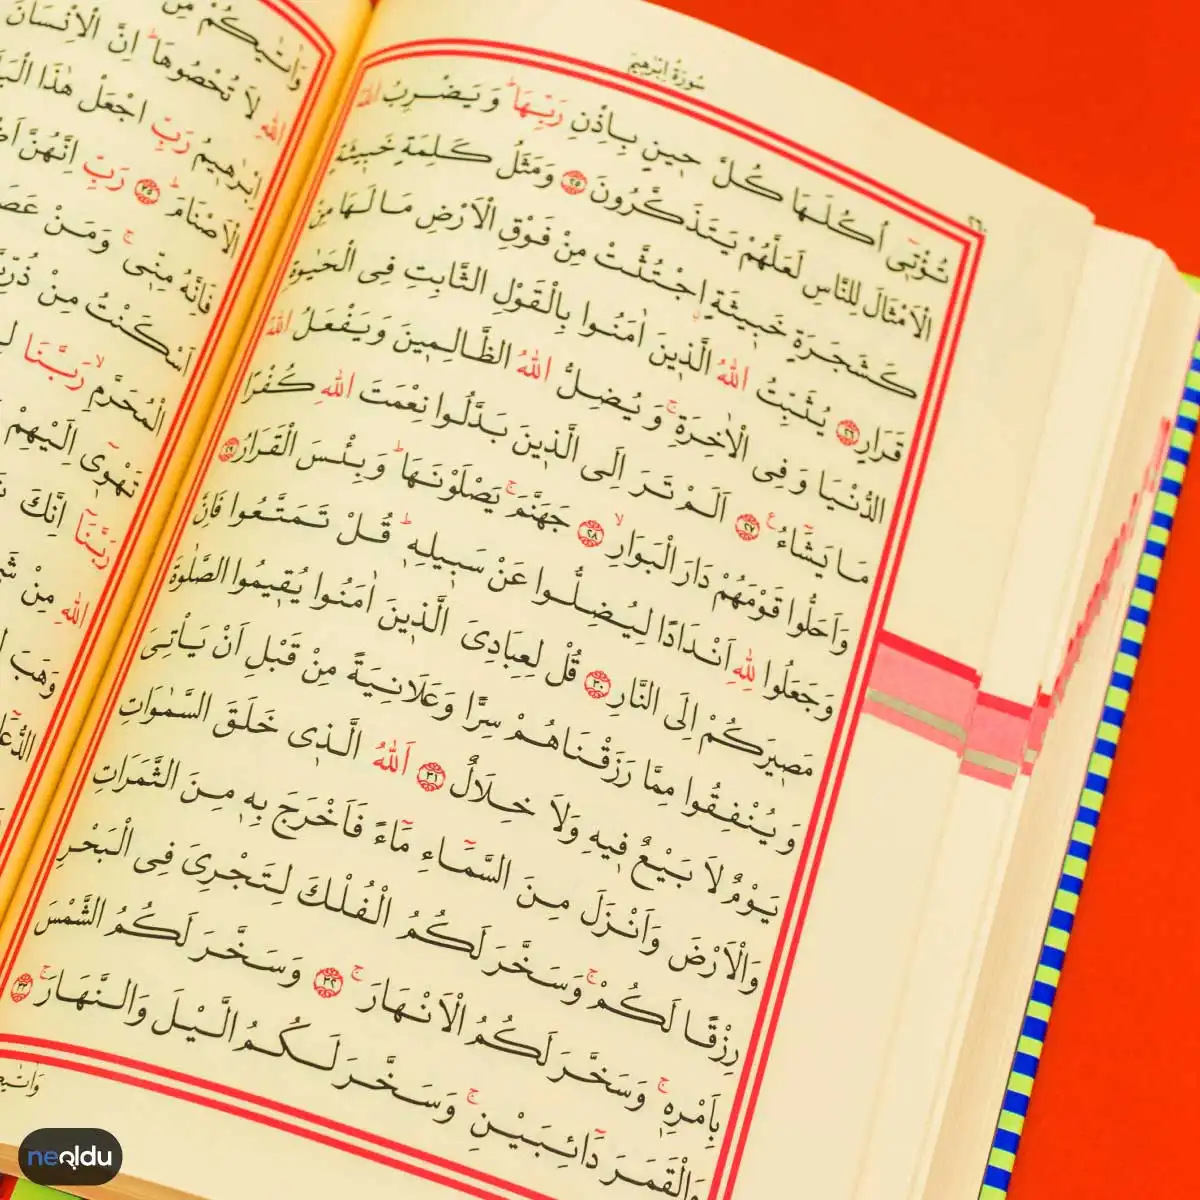 سُورَةُ اِبْرٰهِيمَ
٢٦٠
تُؤْت۪ٓى اُكُلَهَا كُلَّ ح۪ينٍ بِاِذْنِ رَبِّهَاۜ وَيَضْرِبُ اللّٰهُ
الْاَمْثَالَ لِلنَّاسِ لَعَلَّهُمْ يَتَذَكَّرُونَ ﴿٢٥﴾ وَمَثَلُ كَلِمَةٍ خَب۪يثَةٍ
كَشَجَرَةٍ خَب۪يثَةٍۨ اجْتُثَّتْ مِنْ فَوْقِ الْاَرْضِ مَا لَهَا مِنْ
قَرَارٍ ﴿٢٦﴾ يُثَبِّتُ اللّٰهُ الَّذ۪ينَ اٰمَنُوا بِالْقَوْلِ الثَّابِتِ فِى الْحَيٰوةِ
الدُّنْيَا وَفِى الْاٰخِرَةِۚ وَيُضِلُّ اللّٰهُ الظَّالِم۪ينَ وَيَفْعَلُ اللّٰهُ
مَا يَشَٓاءُ۟ ﴿٢٧﴾ اَلَمْ تَرَ اِلَى الَّذ۪ينَ بَدَّلُوا نِعْمَتَ اللّٰهِ كُفْرًا
وَاَحَلُّوا قَوْمَهُمْ دَارَ الْبَوَارِۙ ﴿٢٨﴾ جَهَنَّمَۚ يَصْلَوْنَهَاۜ وَبِئْسَ الْقَرَارُ ﴿٢٩﴾
وَجَعَلُوا لِلّٰهِ اَنْدَادًا لِيُضِلُّوا عَنْ سَب۪يلِه۪ۜ قُلْ تَمَتَّعُوا فَاِنَّ
مَص۪يرَكُمْ اِلَى النَّارِ ﴿٣٠﴾ قُلْ لِعِبَادِىَ الَّذ۪ينَ اٰمَنُوا يُق۪يمُوا الصَّلٰوةَ
وَيُنْفِقُوا مِمَّا رَزَقْنَاهُمْ سِرًّا وَعَلَانِيَةً مِنْ قَبْلِ اَنْ يَاْتِىَ
يَوْمٌ لَا بَيْعٌ ف۪يهِ وَلَا خِلَالٌ ﴿٣١﴾ اَللّٰهُ الَّذ۪ى خَلَقَ السَّمٰوَاتِ
وَالْاَرْضَ وَاَنْزَلَ مِنَ السَّمَٓاءِ مَٓاءً فَاَخْرَجَ بِه۪ مِنَ الثَّمَرَاتِ
رِزْقًا لَكُمْۚ وَسَخَّرَ لَكُمُ الْفُلْكَ لِتَجْرِىَ فِى الْبَحْرِ
بِاَمْرِه۪ۚ وَسَخَّرَ لَكُمُ الْاَنْهَارَۚ ﴿٣٢﴾ وَسَخَّرَ لَكُمُ الشَّمْسَ
وَالْقَمَرَ دَٓائِبَيْنِۚ وَسَخَّرَ لَكُمُ الَّيْلَ وَالنَّهَارَۚ ﴿٣٣﴾
وَاٰتٰيكُمْ مِنْ
لَا تُحْصُوهَاۜ اِنَّ الْاِنْسَانَ
اِبْرٰه۪يمُ رَبِّ اجْعَلْ هٰذَا
الْاَصْنَامَۜ ﴿٣٥﴾ رَبِّ اِنَّهُنَّ
فَاِنَّهُ مِنّ۪ىۚ وَمَنْ
اَسْكَنْتُ مِنْ
الْمُحَرَّمِۙ رَبَّنَا
تَهْو۪ٓى اِلَيْهِمْ
رَبَّنَٓا اِنَّكَ
اللّٰهِ مِنْ
وَهَبَ
neoldu